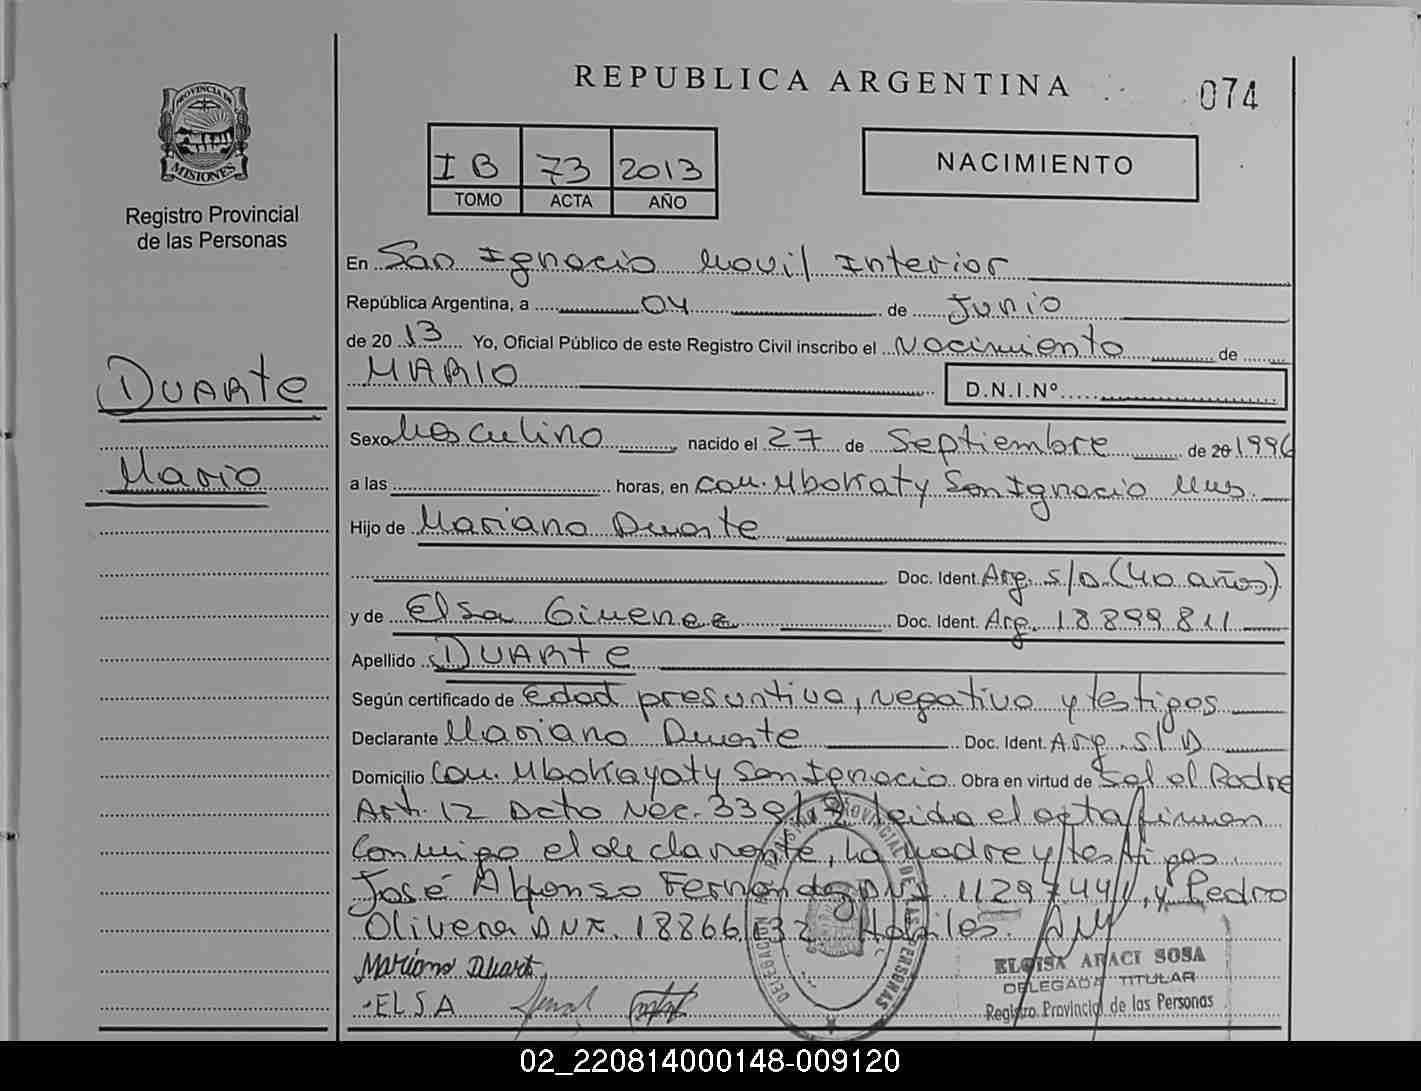 REPUBLICA ARGENTINA
074
PROVINCIA DE
MISIONES
Registro Provincial
de las Personas
I B 73 2013
TOMO ACTA AÑO
NACIMIENTO
En San Ignacio Movil Interior
República Argentina, a 04 de Junio
de 20 13 Yo, Oficial Público de este Registro Civil inscribo el Nacimiento de
MARIO D.N.I.Nº
DUARTE
Mario
Sexo Masculino nacido el 27 de Septiembre de 20 1996
a las horas, en Com. Mbokaty San Ignacio Mnes.
Hijo de Mariano Duarte
Doc. Ident. Arg. s/D (40 años)
y de Elsa Gimenez Doc. Ident. Arg. 18899811
Apellido DUARTE
Según certificado de edad presuntiva, negativo y testigos
Declarante Mariano Duarte Doc. Ident. Arg. S/D
Domicilio Com. Mbokayaty San Ignacio Obra en virtud de Sol el Padre
Art. 12 Dcto Nec. 339/13 leida el acta firman
conmigo el declarante, la madre y testigos
José Alfonso Fernandez DNI 11297441, y Pedro
Olivera DNI. 18866632 Habiles.
Mariano Duarte
ELSA
ELOISA ARACI SOSA
DELEGADA TITULAR
Registro Provincial de las Personas
02_220814000148-009120